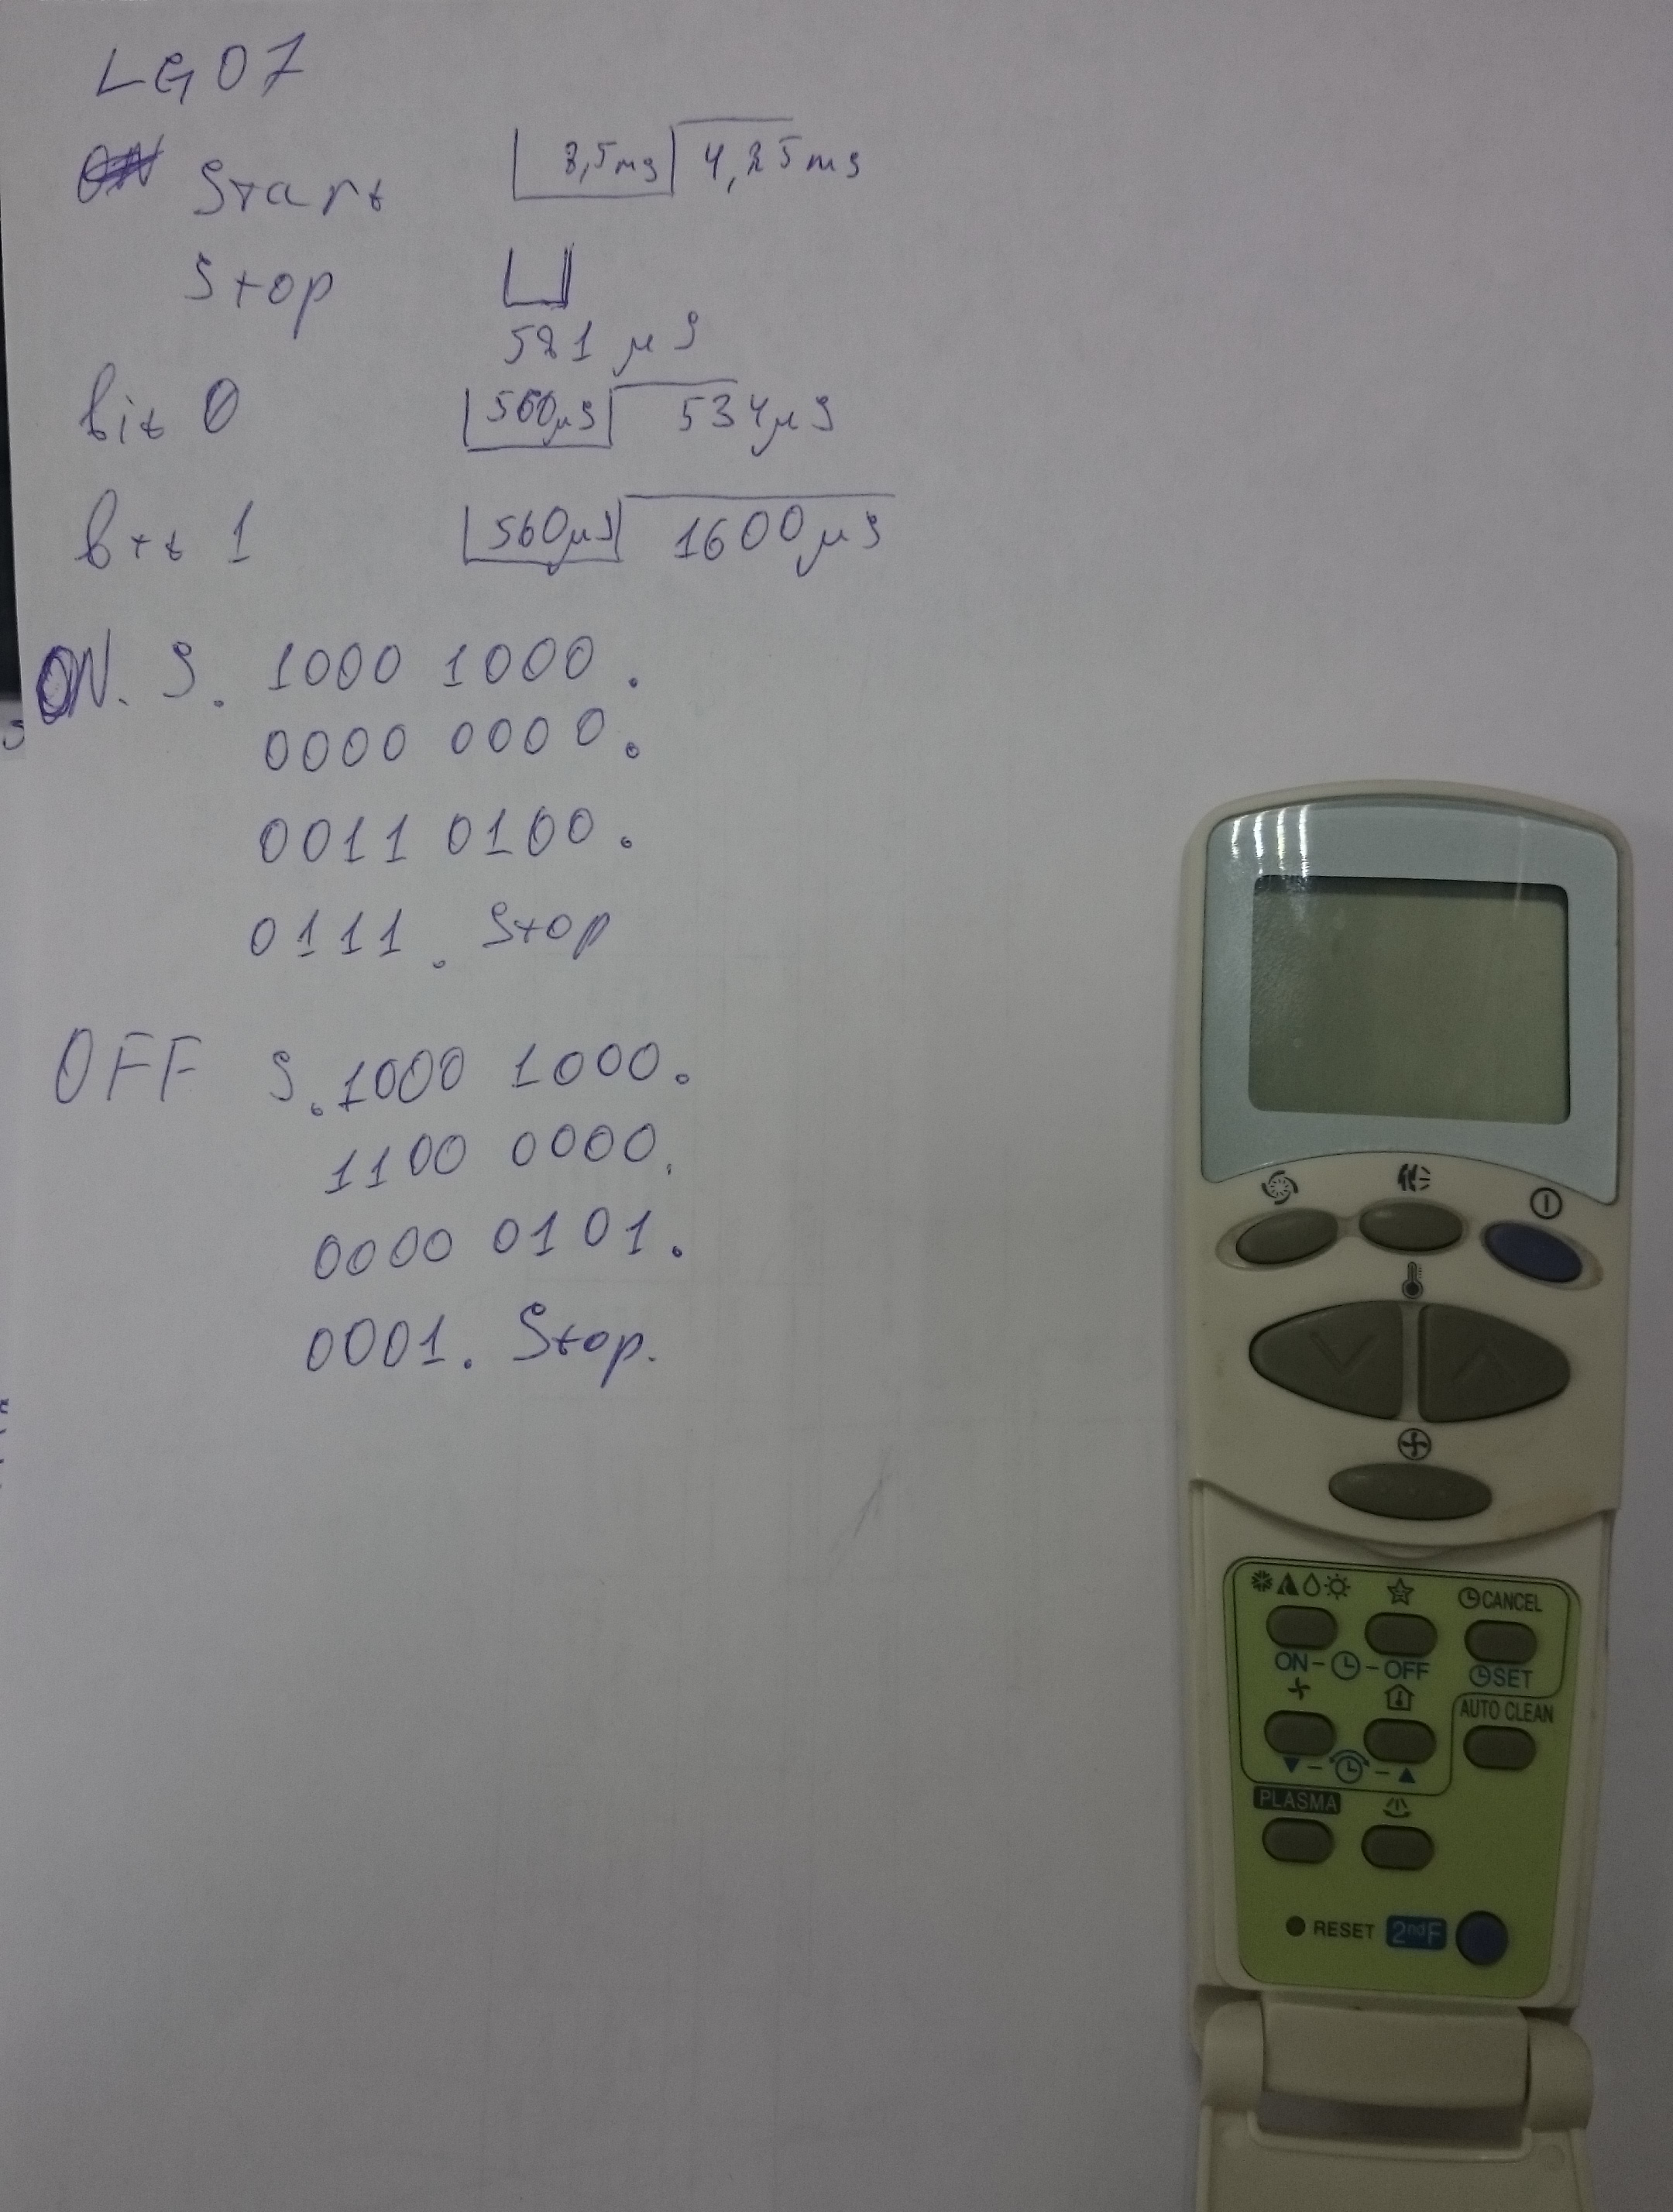 LG07
Start 8,5ms 4,25ms
Stop
581 μs
bit 0 560μs 534μs
bit 1 560μs 1600μs
ON. S. 1000 1000.
0000 0000.
0011 0100.
0111. Stop
OFF S. 1000 1000.
1100 0000.
0000 0101.
0001. Stop.
CANCEL
ON - - OFF SET
AUTO CLEAN
PLASMA
RESET 2ndF